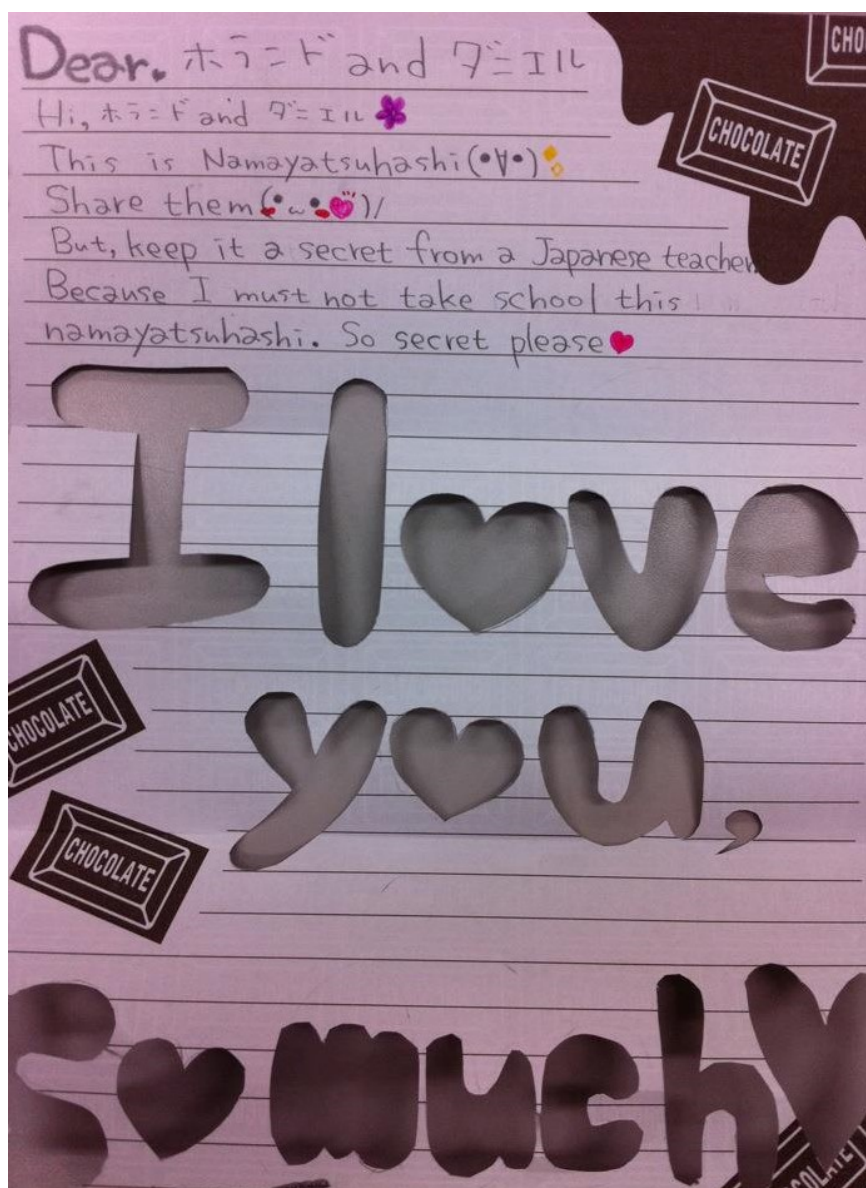 CHO
CHOCOLATE
Dear. ホラニド and ダニエル
Hi, ホラニド and ダニエル
This is Namayatsuhashi(•∀•)
Share them(•ω•)/
But, keep it a secret from a Japanese teacher.
Because I must not take school this
namayatsuhashi. So secret please
I love
you,
CHOCOLATE
CHOCOLATE
So much
COLATE